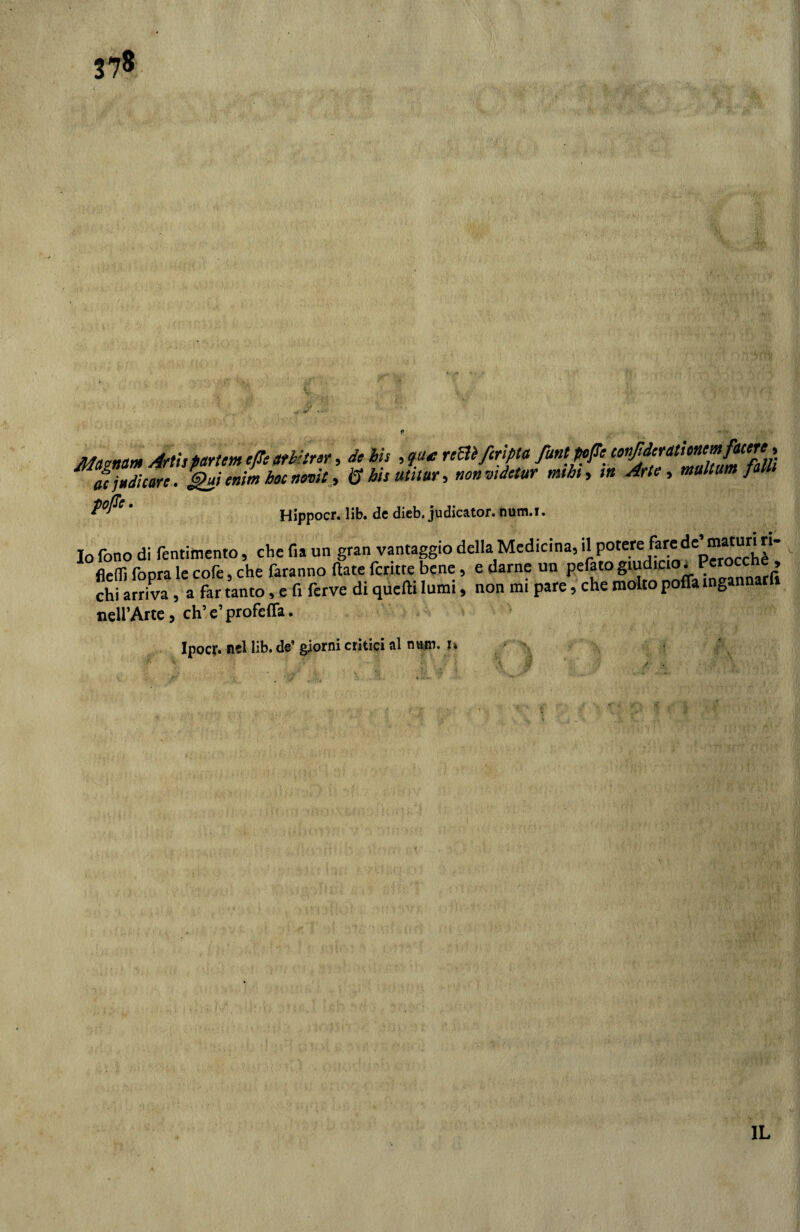 378
Magnam Artis partem eſſe arbitror, de his, quæ rectè ſcripta ſunt poſſe conſiderationem facere,
ac judicare. Qui enim hoc novit, & his utitur, non videtur mihi, in Arte, multum falli
poſſe.
Hippocr. lib. de dieb. judicator. num.1.
Io ſono di ſentimento, che ſia un gran vantaggio della Medicina, il potere fare de' maturi ri-
fleſſi ſopra le coſe, che ſaranno ſtate ſcritte bene, e darne un peſato giudicio. Perocchè,
chi arriva, a far tanto, e ſi ſerve di queſti lumi, non mi pare, che molto poſſa ingannarſi
nell'Arte, ch' e' profeſſa.
Ipocr. nel lib. de' giorni critici al num. 1.
IL